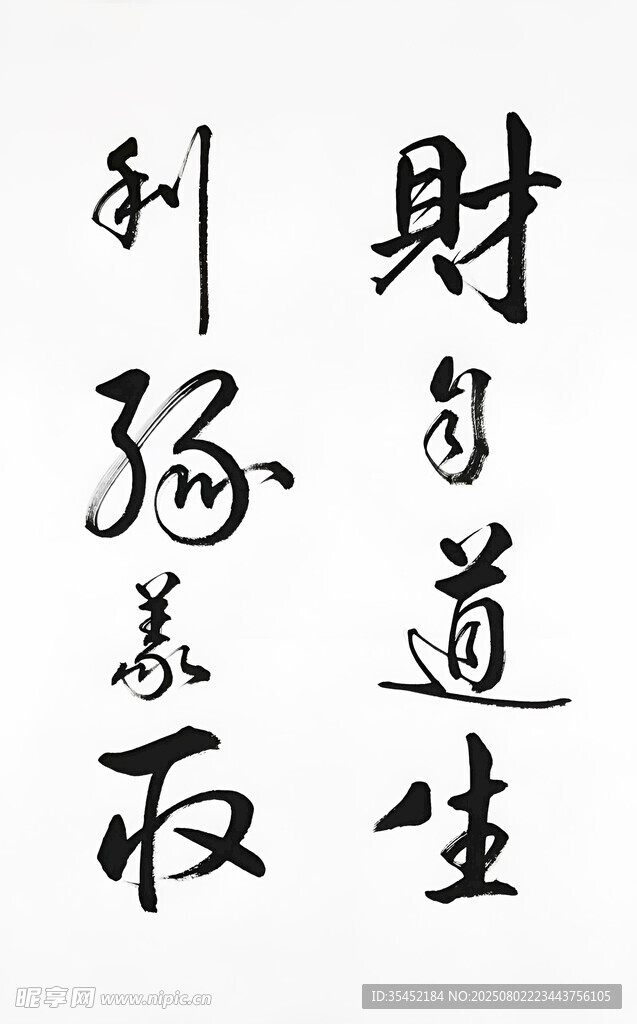 財自道生
利緣義取
昵享网 www.nipic.cn
ID:35452184 NO:20250802223443756105